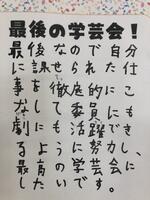 最後の学芸会！
最後なので自分
に課せられた仕
事を徹底的にこ
なして委員にも
劇にも活躍でき
るよう努力し、
最高の学芸会に
したいです。